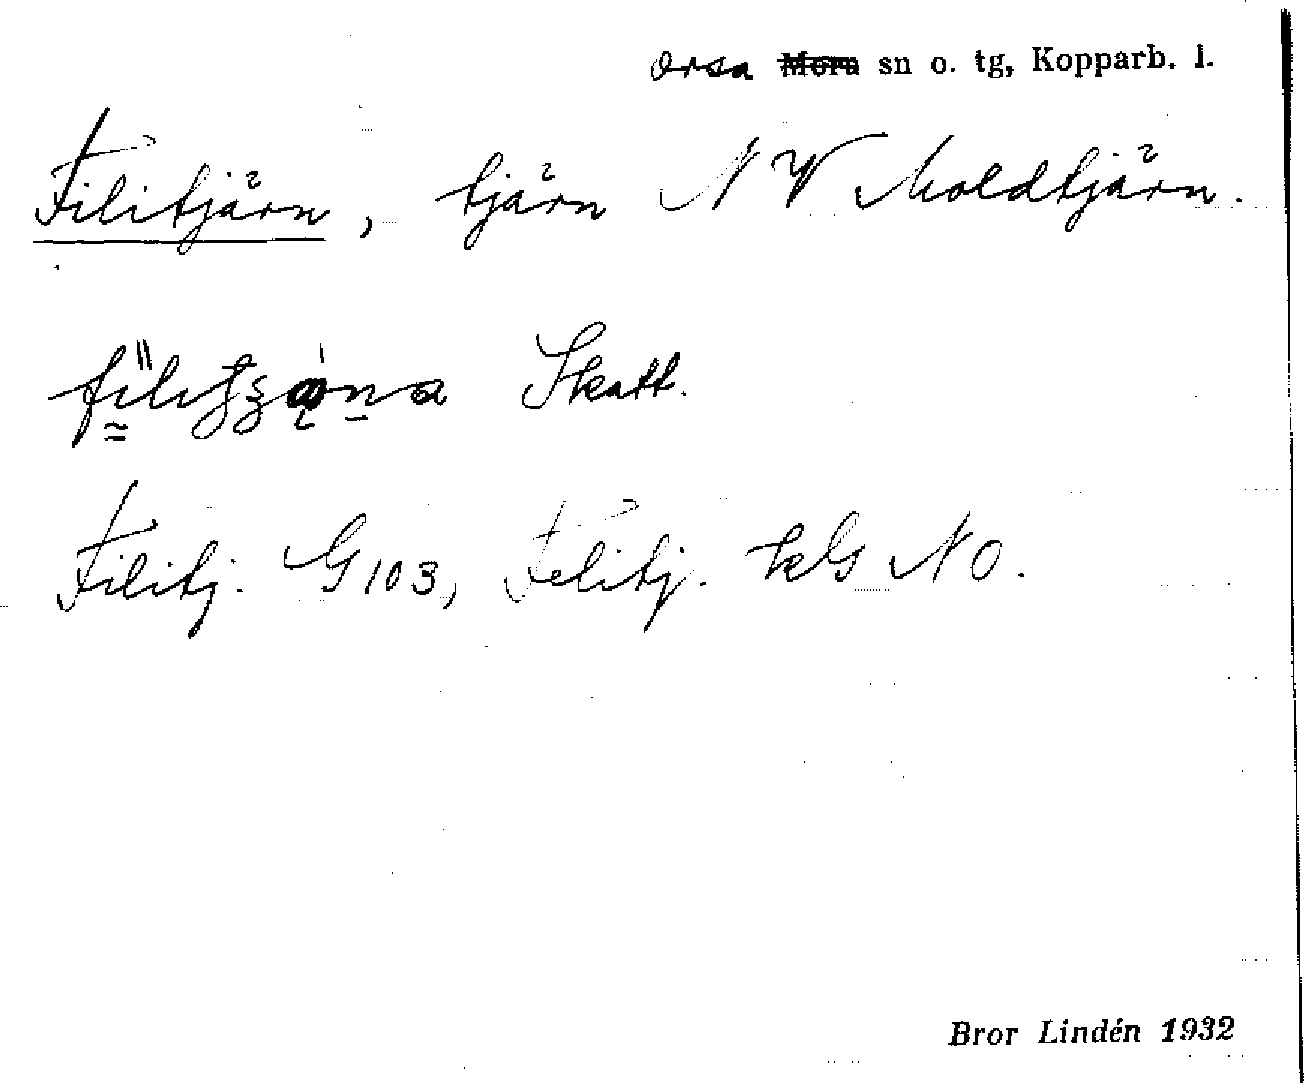 Orsa Mora sn o. tg, Kopparb. l.
Filitjärn, tjärn NV Moldtjärn.
Skatt.
Filitj. G 103, Felitj. kG NO.
Bror Lindén 1932